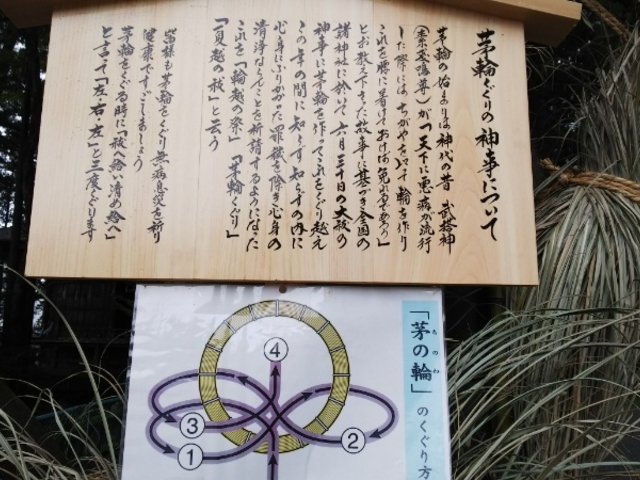 茅輪くぐりの神事について
茅輪の始まりは神代の昔 武塔神
(素戔嗚尊)が「天下に悪病が流行
した際には、ちがやを以て輪を作り
これを腰に着けておけば免れるであろう」
とお教え下さった故事に基づき全国の
諸神社に於いて六月三十日の大祓の
神事に茅輪を作ってこれをくぐり越え
この年の間に知らず知らずの内に
心身にふりかかった罪穢を除き心身の
清浄ならんことを祈請するようになった
これを「輪越の祭」「茅輪くぐり」
「夏越の祓」と云う
皆様も茅輪をくぐり無病息災を祈り
健康ですごしましょう
茅輪をくぐる時に「祓へ給い清め給へ」
と言って「左・右・左」と三度くぐります
「茅の輪」のくぐり方
ちのわ
④
③
①
②